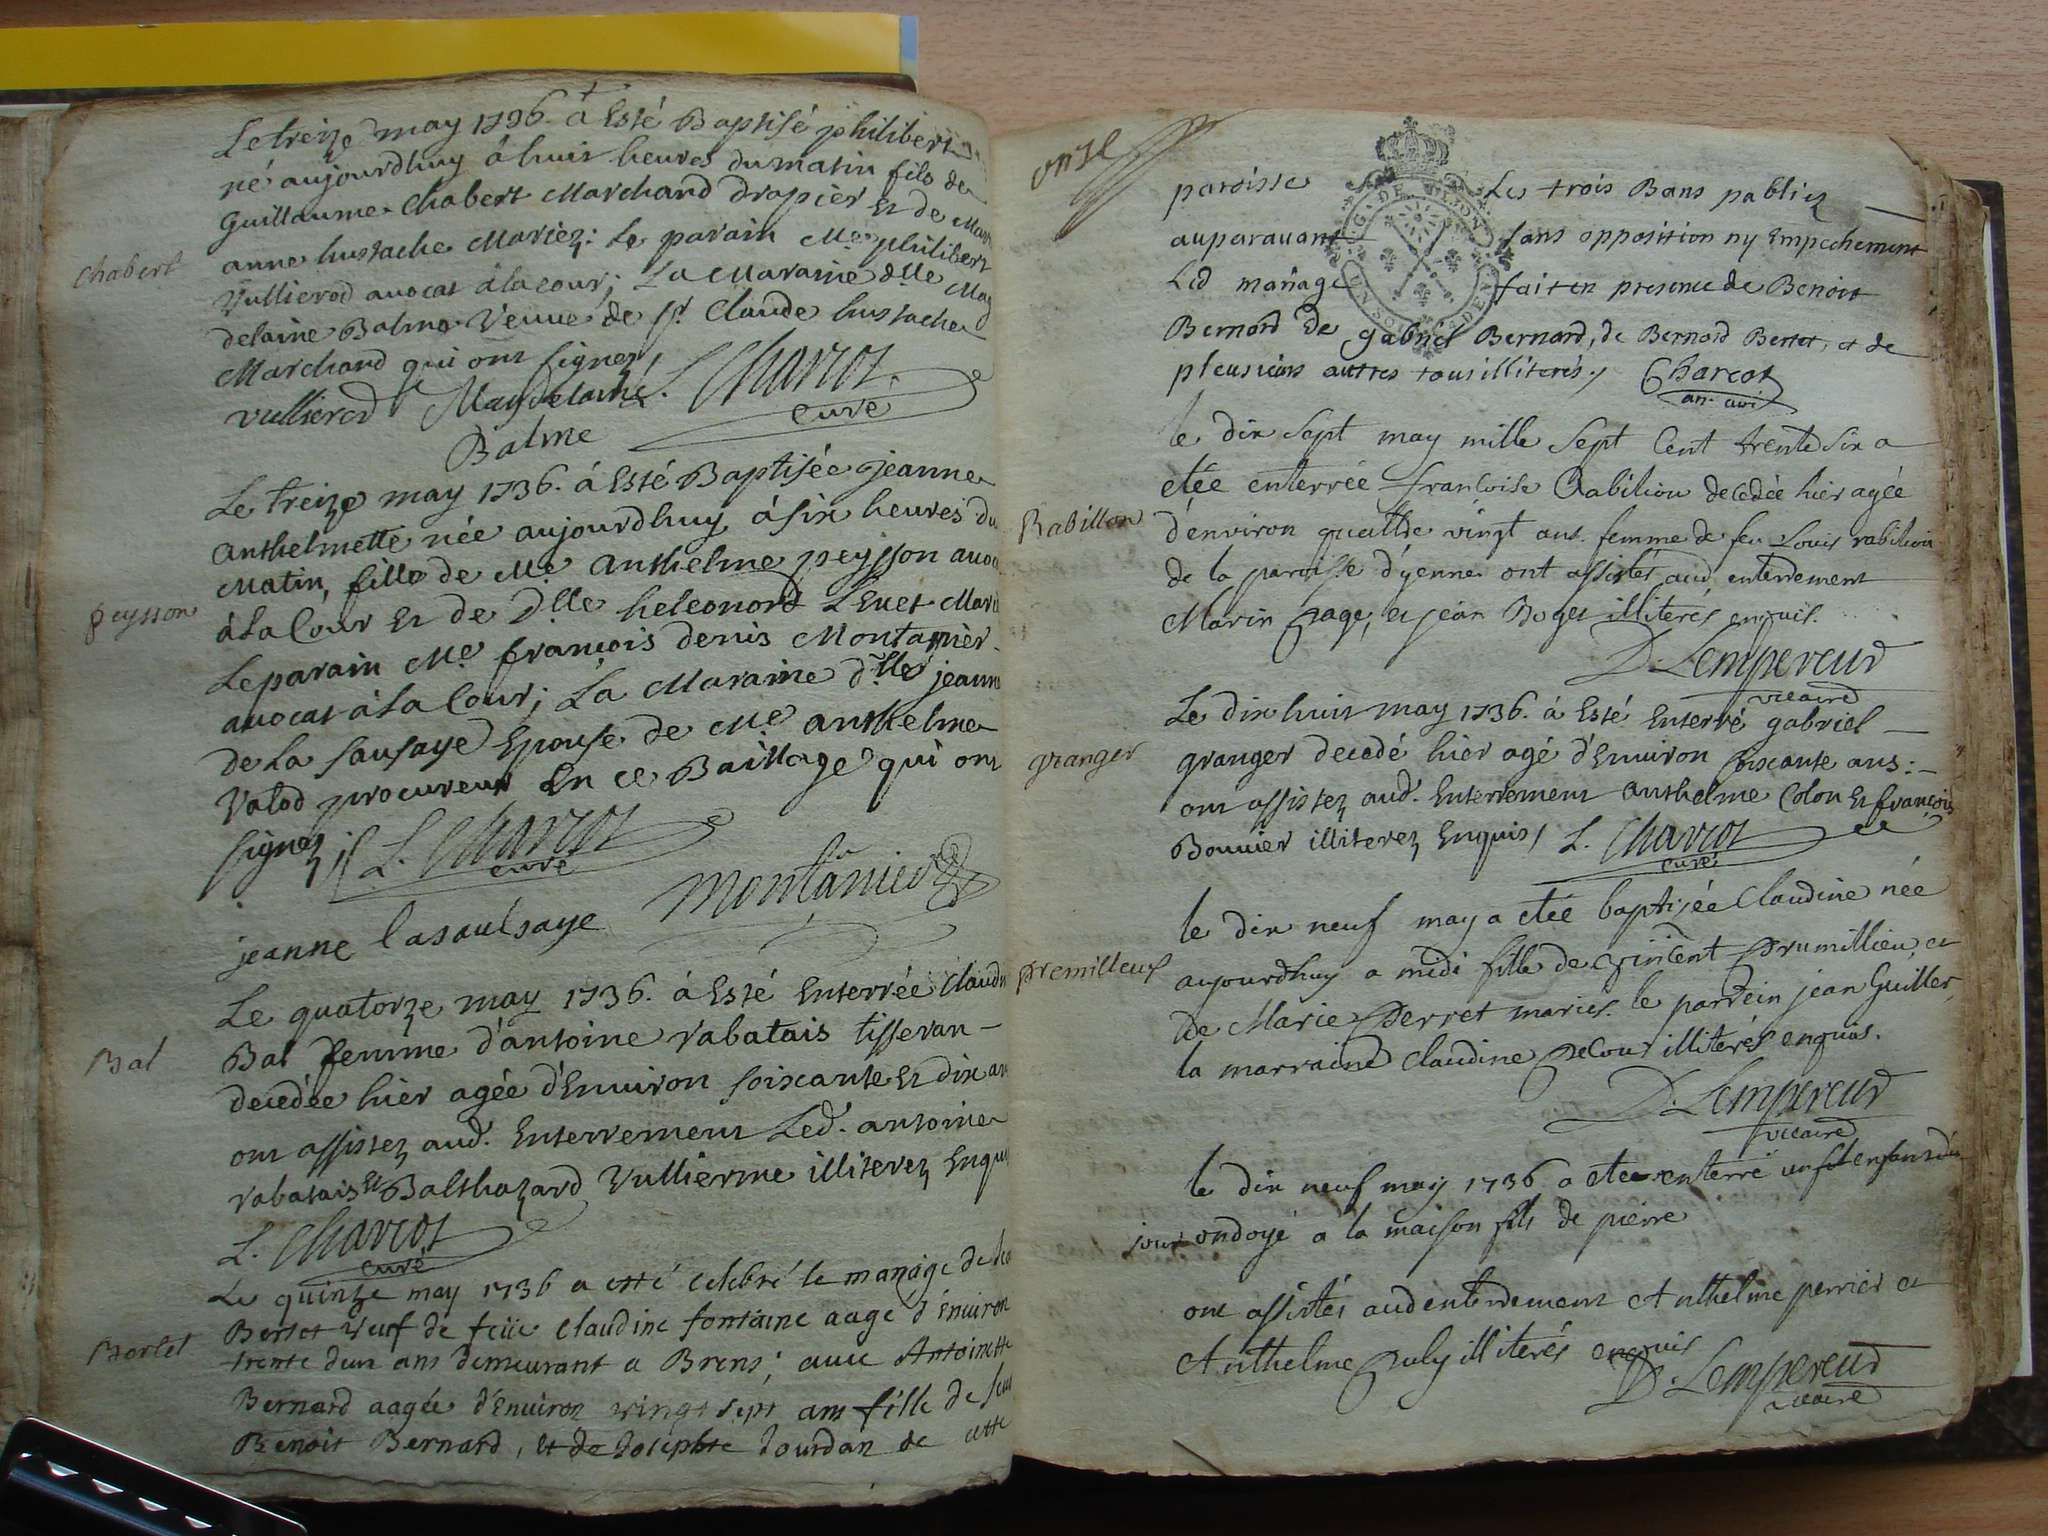 Le treize may 1736. á Esté Baptisé philibert
né aujourdhuy á huit heures du matin fils de
Guillaume Chabert Marchand Drapier Et de Mari
anne hustache Mariez: Le parain Me philibert
Chabert
Vullierod avocat á la cour; La Maraine dlle Mag
delaine Balme Veuve de Sr. Claude hustache
Marchand qui ont signez /
vullierod Magdelaine L. Charcot
Balme curé
Le treize may 1736. á Esté Baptisée jeanne
anthelmette née aujourdhuy á six heures du
Matin, fille de Me anthelme peysson avoc
peysson
á la Cour Et de Dlle heleonord Levet Mari
Le parain Me françois denis Montanier
avocat á la Cour; La Maraine dlle jeanne
de La sausaye Epouse de Me anthelme
Valod procureur En ce Baillage qui ont
signez // L. Charcot
curé
jeanne lasaulsaye Montanier
Le quatorze may 1736. á Esté Enterrée Claudi
Bal
Bal femme d'antoine rabatais tisseran-
decédée hier agée d'Environ soixante Et dix an
ont assistez aud. Enterrement Led. antoine
rabatais Et Balthazard Vullierme illiterez Enqui
L. Charcot
curé
Le quinze may 1736 a esté celebré le mariage de
Bertet
Bertet veuf de feüe Claudine fontaine aagé d'environ
trente deux ans demeurant a Brens; avec Antoinette
Bernard aagée d'Environ vingt sept ans fille de feu
Benoit Bernard, et de Josephte Jourdan de cette
onze
paroisse Les trois Bans publiez
auparavant sans opposition ny Empechement
Led mariage fait en presence de Benoit
Bernard de gabriel Bernard, de Bernard Bertet, et de
pleusieurs autres tous illiterés / Charcot
le dix sept may mille sept Cent trente six a
etée enterrée francoise Rabilion decedée hier agée
Rabillon
d'environ quattre vingt ans. femme de feu Louis rabilion
de la paroisse d'yenne ont assistés aud. enterrement
Marin page, et jean Boget illiterés enquis.
D. Lempereur
vicaire
Le dix huit may 1736. á Esté Enterré gabriel
granger
granger decedé hier agé d'Environ soixante ans:-
ont assistez aud. Enterrement anthelme Colon Et françois
Bouvier illiterez Enquis / L. Charcot
curé
le dix neuf may a etée baptisée Claudine née
premilleux
aujourdhuy a midi fille de vincent prumillieu et
de Marie perret mariés. le parrein jean Guillet,
la marraine Claudine Decour illiterés enquis.
D. Lempereur
vicaire
le dix neuf may 1736 a etée enterré un enfant
ondoyé a la maison fils de pierre
ont assistés aud enterrement Anthelme perrier et
Anthelme illiterés enquis
D. Lempereur
vicaire